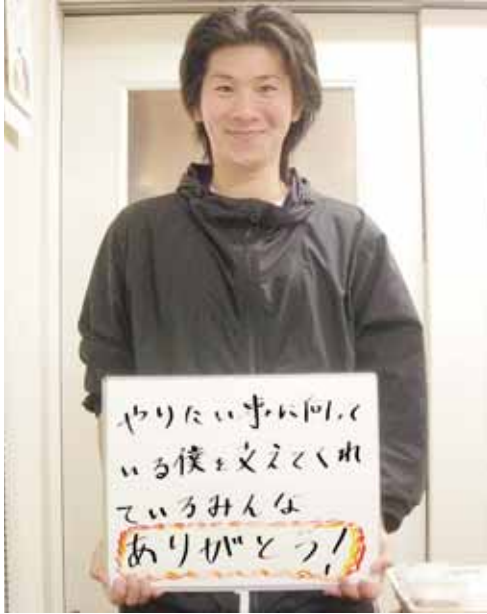 やりたい事に向って
いる僕を支えてくれ
ているみんな
ありがとう!